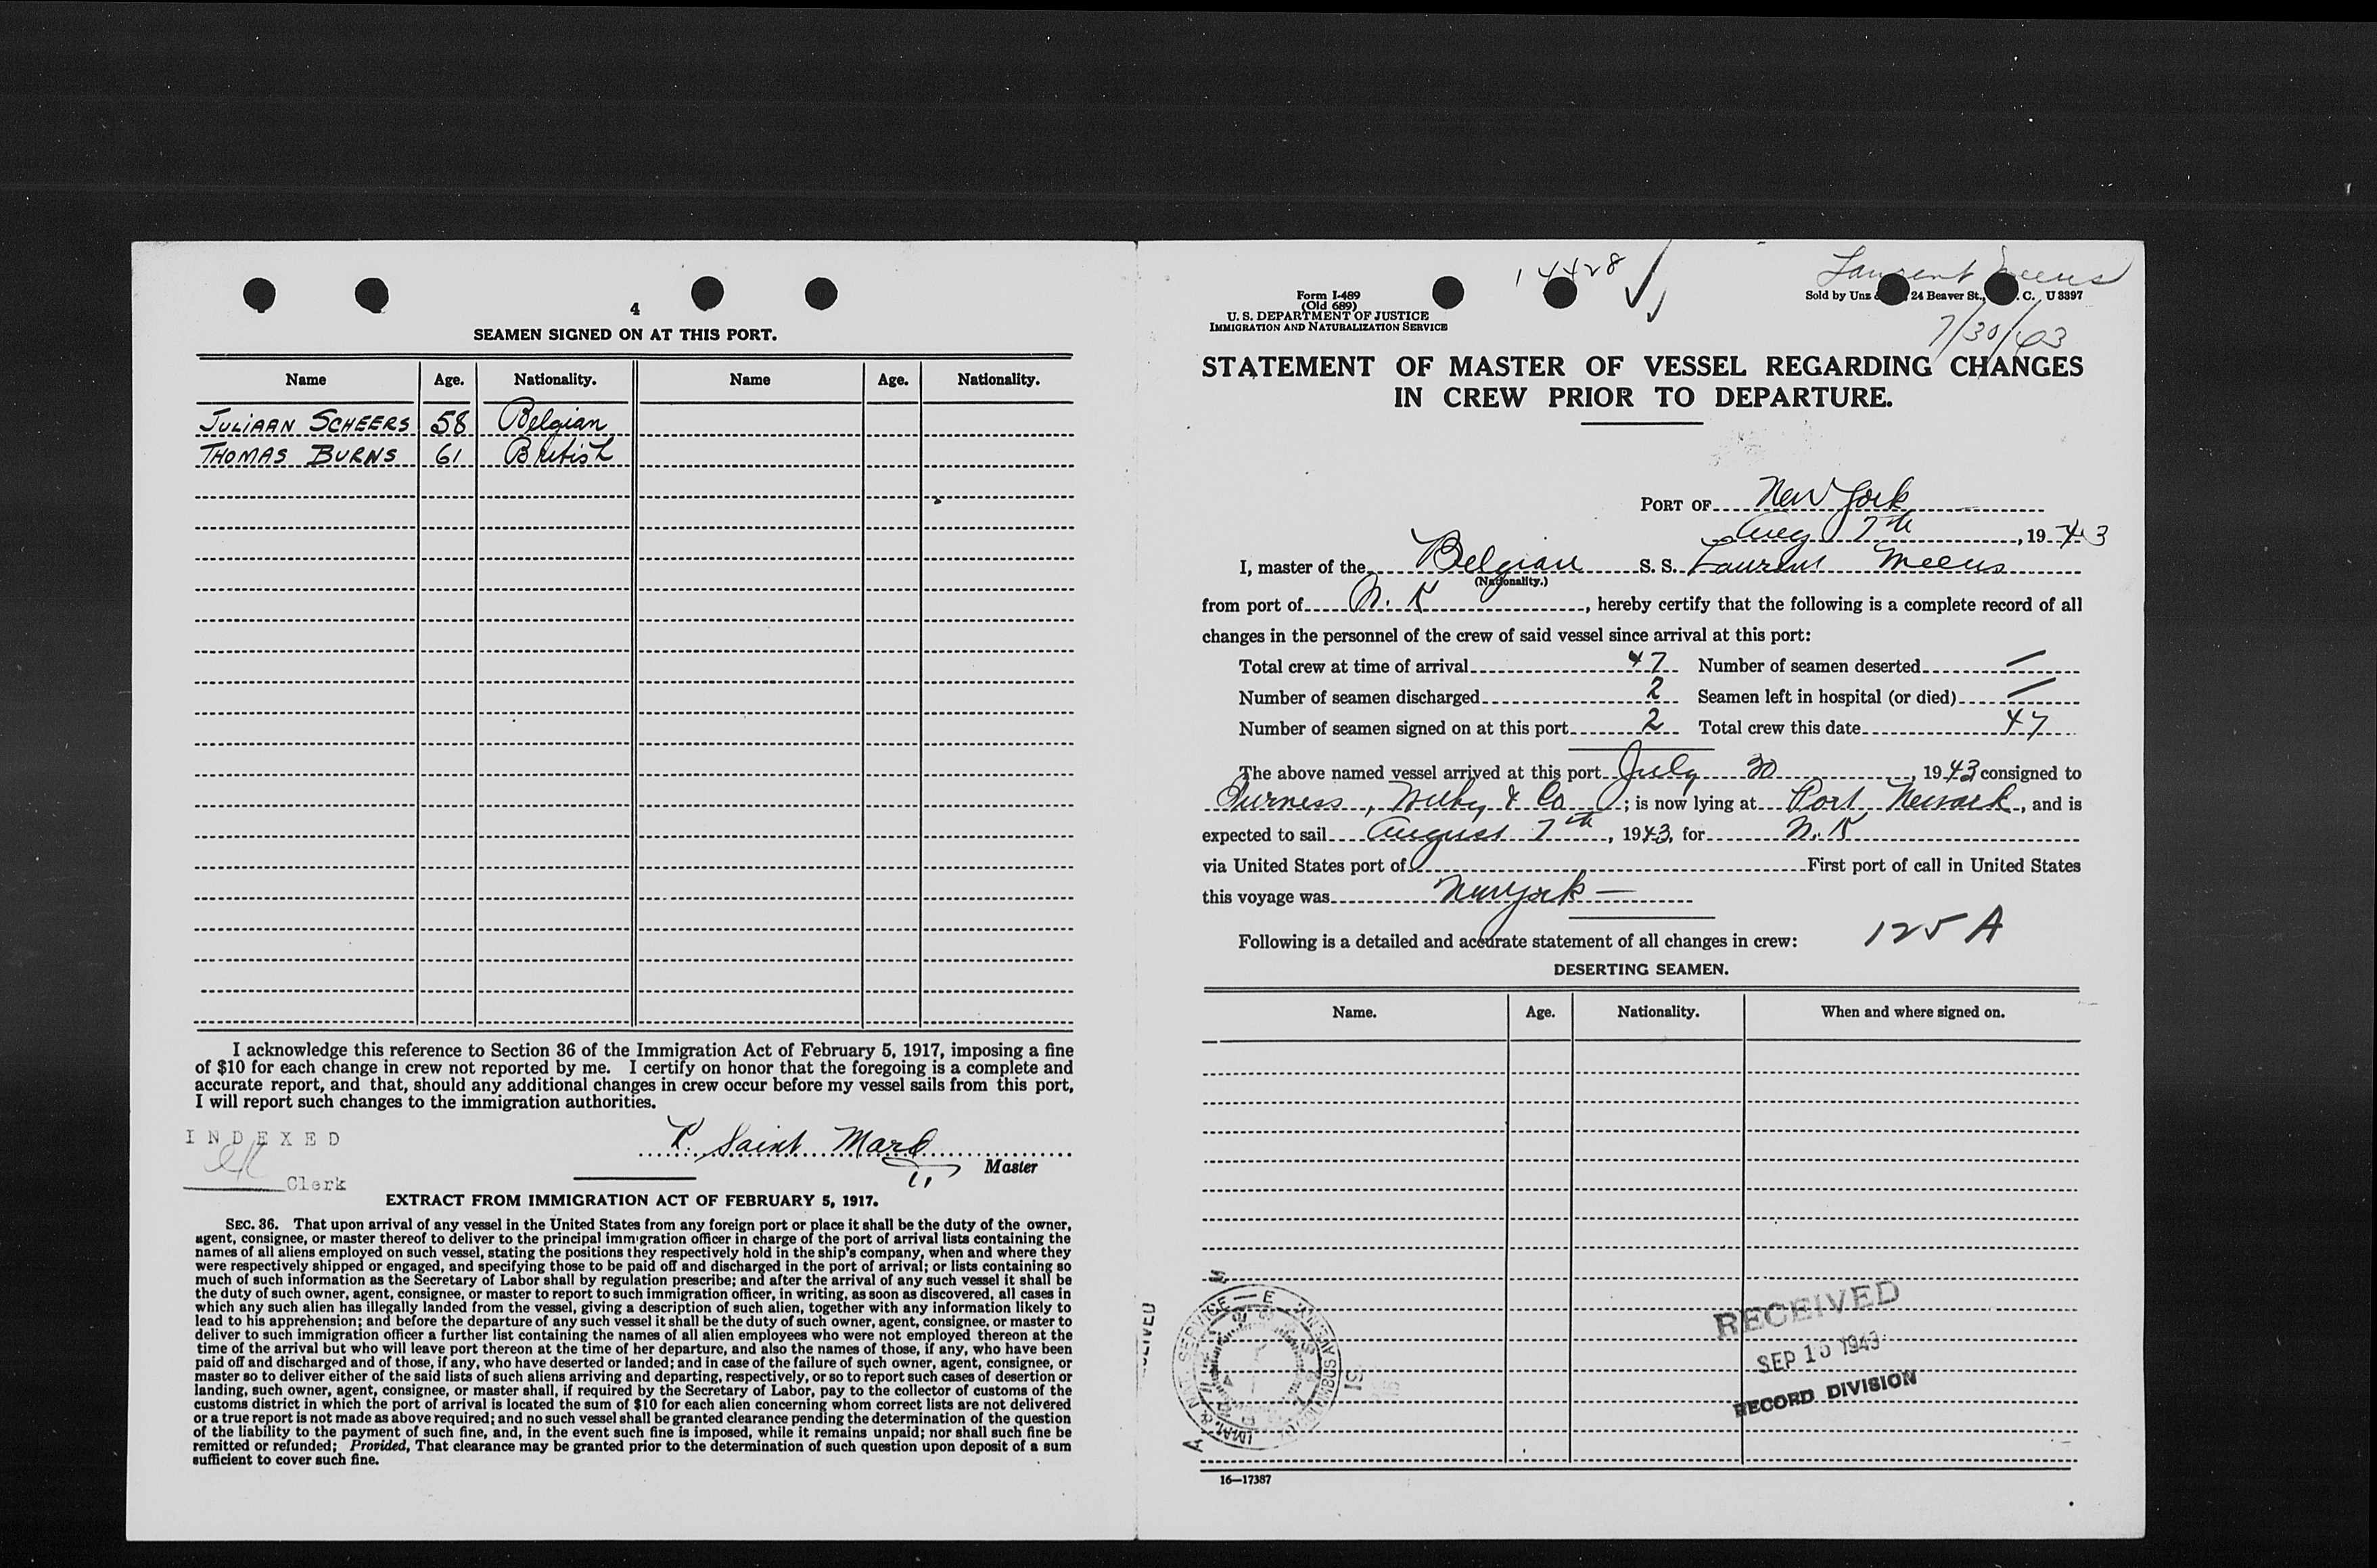 4
SEAMEN SIGNED ON AT THIS PORT.
Name Age. Nationality. Name Age. Nationality.
JULIAAN SCHEERS 58 Belgian
THOMAS BURNS 61 British
I acknowledge this reference to Section 36 of the Immigration Act of February 5, 1917, imposing a fine
of $10 for each change in crew not reported by me. I certify on honor that the foregoing is a complete and
accurate report, and that, should any additional changes in crew occur before my vessel sails from this port,
I will report such changes to the immigration authorities.
INDEXED
Clerk
Saint Mard
Master
EXTRACT FROM IMMIGRATION ACT OF FEBRUARY 5, 1917.
SEC. 36. That upon arrival of any vessel in the United States from any foreign port or place it shall be the duty of the owner,
agent, consignee, or master thereof to deliver to the principal immigration officer in charge of the port of arrival lists containing the
names of all aliens employed on such vessel, stating the positions they respectively hold in the ship's company, when and where they
were respectively shipped or engaged, and specifying those to be paid off and discharged in the port of arrival; or lists containing so
much of such information as the Secretary of Labor shall by regulation prescribe; and after the arrival of any such vessel it shall be
the duty of such owner, agent, consignee, or master to report to such immigration officer, in writing, as soon as discovered, all cases in
which any such alien has illegally landed from the vessel, giving a description of such alien, together with any information likely to
lead to his apprehension; and before the departure of any such vessel it shall be the duty of such owner, agent, consignee, or master to
deliver to such immigration officer a further list containing the names of all alien employees who were not employed thereon at the
time of the arrival but who will leave port thereon at the time of her departure, and also the names of those, if any, who have been
paid off and discharged and of those, if any, who have deserted or landed; and in case of the failure of such owner, agent, consignee, or
master so to deliver either of the said lists of such aliens arriving and departing, respectively, or so to report such cases of desertion or
landing, such owner, agent, consignee, or master shall, if required by the Secretary of Labor, pay to the collector of customs of the
customs district in which the port of arrival is located the sum of $10 for each alien concerning whom correct lists are not delivered
or a true report is not made as above required; and no such vessel shall be granted clearance pending the determination of the question
of the liability to the payment of such fine, and, in the event such fine is imposed, while it remains unpaid; nor shall such fine be
remitted or refunded; Provided, That clearance may be granted prior to the determination of such question upon deposit of a sum
sufficient to cover such fine.
14428
Laurent Meeus
Form I-489
(Old 689)
U. S. DEPARTMENT OF JUSTICE
IMMIGRATION AND NATURALIZATION SERVICE
Sold by Unz 24 Beaver St., . C. U 3397
7/30/43
STATEMENT OF MASTER OF VESSEL REGARDING CHANGES
IN CREW PRIOR TO DEPARTURE.
PORT OF New York
Aug 7th, 1943
I, master of the Belgian S. S. Laurent Meeus
(Nationality.)
from port of N. K, hereby certify that the following is a complete record of all
changes in the personnel of the crew of said vessel since arrival at this port:
Total crew at time of arrival 47 Number of seamen deserted —
Number of seamen discharged 2 Seamen left in hospital (or died) —
Number of seamen signed on at this port 2 Total crew this date 47
The above named vessel arrived at this port July 30, 1943 consigned to
Furness, Withy & Co; is now lying at Port Newark, and is
expected to sail August 7th, 1943, for N. K
via United States port of First port of call in United States
this voyage was New York —
Following is a detailed and accurate statement of all changes in crew: 125 A
DESERTING SEAMEN.
Name. Age. Nationality. When and where signed on.
RECEIVED
SEP 10 1943
RECORD DIVISION
16—17387